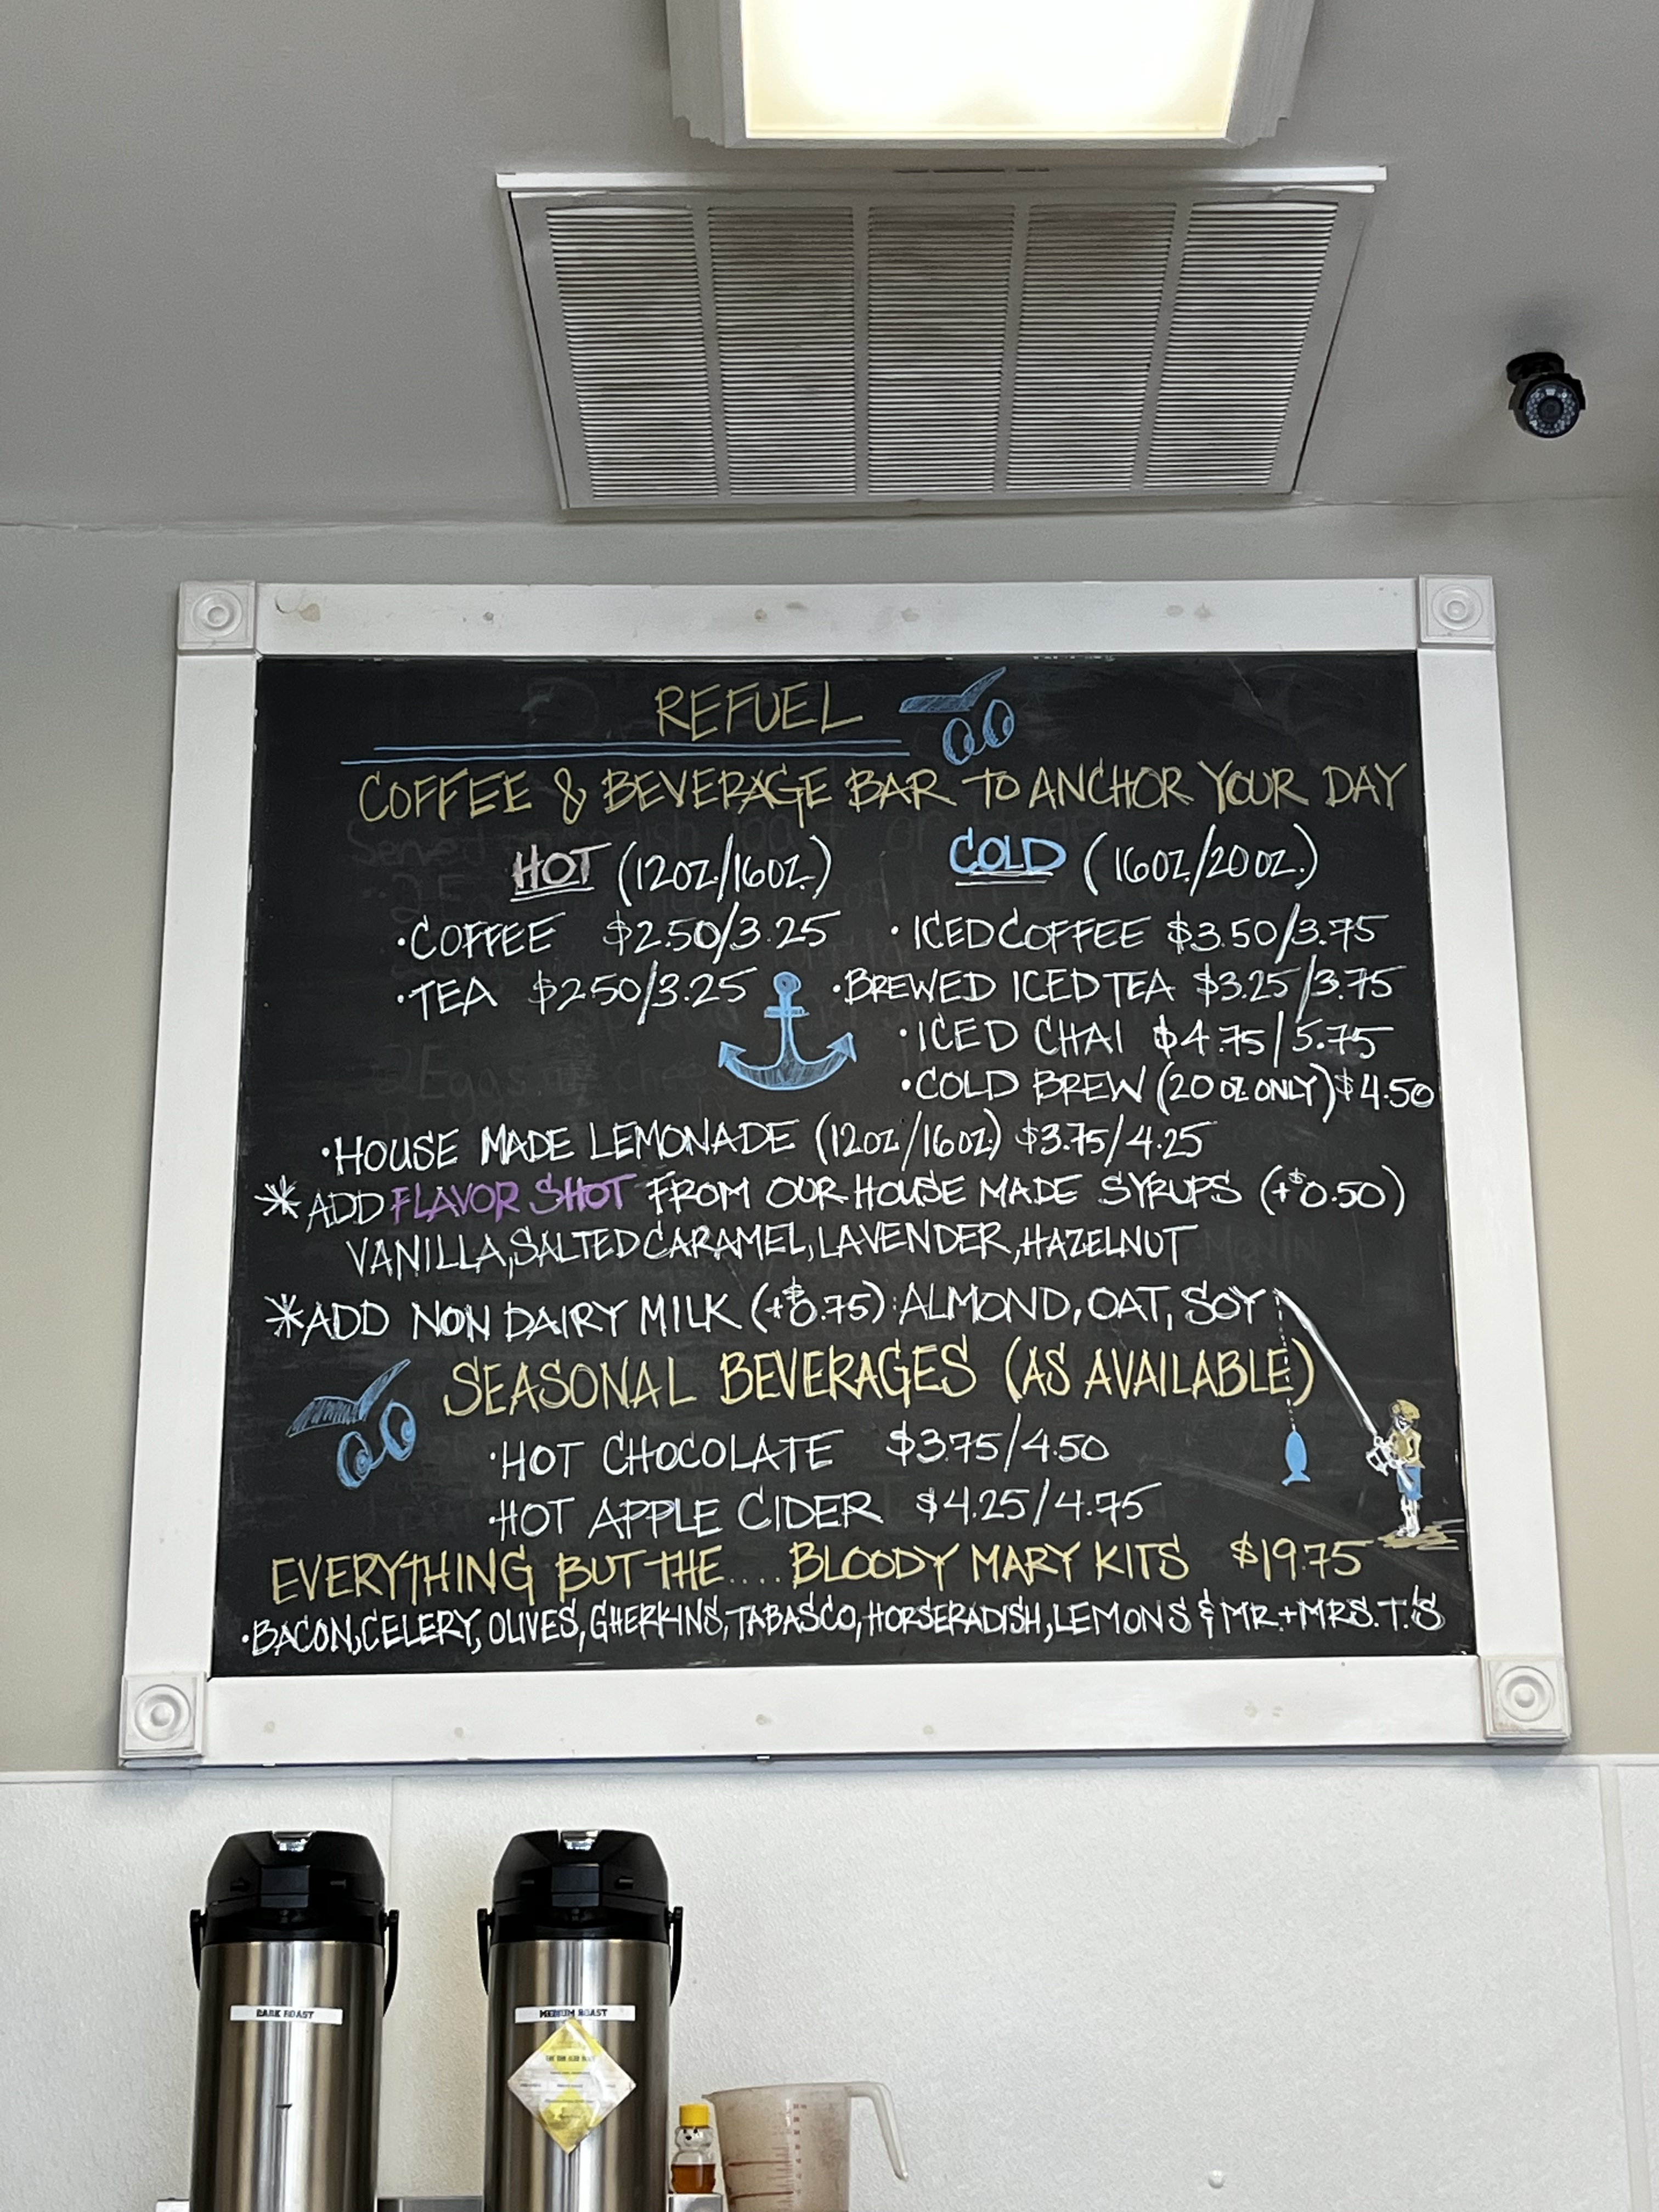 REFUEL
COFFEE & BEVERAGE BAR TO ANCHOR YOUR DAY
HOT (12OZ/16OZ.)
·COFFEE $2.50/3.25
·TEA $2.50/3.25
COLD (16OZ/20OZ.)
·ICED COFFEE $3.50/3.75
·BREWED ICED TEA $3.25/3.75
·ICED CHAI $4.75/5.75
·COLD BREW (20 OZ ONLY) $4.50
·HOUSE MADE LEMONADE (12OZ/16OZ) $3.75/4.25
*ADD FLAVOR SHOT FROM OUR HOUSE MADE SYRUPS (+$0.50)
VANILLA, SALTED CARAMEL, LAVENDER, HAZELNUT
*ADD NON DAIRY MILK (+$0.75): ALMOND, OAT, SOY
SEASONAL BEVERAGES (AS AVAILABLE)
·HOT CHOCOLATE $3.75/4.50
·HOT APPLE CIDER $4.25/4.75
EVERYTHING BUT THE.... BLOODY MARY KITS $19.75
·BACON, CELERY, OLIVES, GHERKINS, TABASCO, HORSERADISH, LEMONS & MR.+MRS. T.'S
DARK ROAST
MEDIUM ROAST